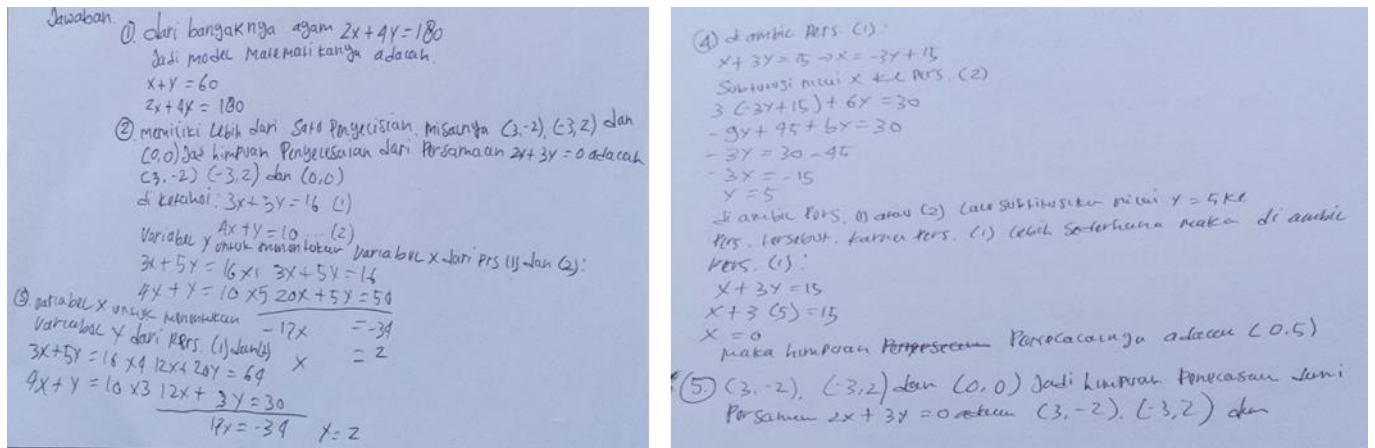 Jawaban.
① dari bangaknga agam 2x + 4y = 180
Jadi model Matematikanga adacah.
x + y = 60
2x + 4x = 180
② memiciki Lebih dari Sato Pengecisian. misacnga (3,-2), (-3,2) dan
(0,0) Jad himpuan Pengecesaian dari Persamaan 2x + 3y = 0 adacah
(3,-2) (-3,2) dan (0,0)
di ketahoi : 3x + 3y = 16 (1)
4x + y = 10 ... (2)
Variabec y untuk menentukan Variaboc x dari Prs (1) dan (2) :
3x + 5y = 16 x1 3x + 5y = 16
4y + y = 10 x5 20x + 5y = 50
-17x = -34
x = 2
③ variabec x untuk menentukan
Variaboc y dari Pers. (1) dan (2)
3x + 5y = 16 x4 12x + 20y = 64
4x + y = 10 x3 12x + 3y = 30
17y = -34 y = 2
④ diambic Pers. (1) :
x + 3y = 15 → x = -3y + 15
Subturosi nicai x ke Pers. (2)
3 (-3y + 15) + 6y = 30
- 9y + 45 + 6y = 30
- 3y = 30 - 45
- 3x = - 15
y = 5
di ambic Pers. (1) atau (2) Lace subtitusikan nicai y = 5 ke
Pers. tersebut. karna Pers. (1) Lebih Sederhana maka di ambic
Pers. (1) :
x + 3y = 15
x + 3 (5) = 15
x = 0
maka himpuan Pancacacanga adacau (0.5)
⑤ (3,-2), (-3,2) dan (0,0) Jadi himpuan Penecasan dani
Persamen 2x + 3y = 0 (3,-2). (-3,2) dan